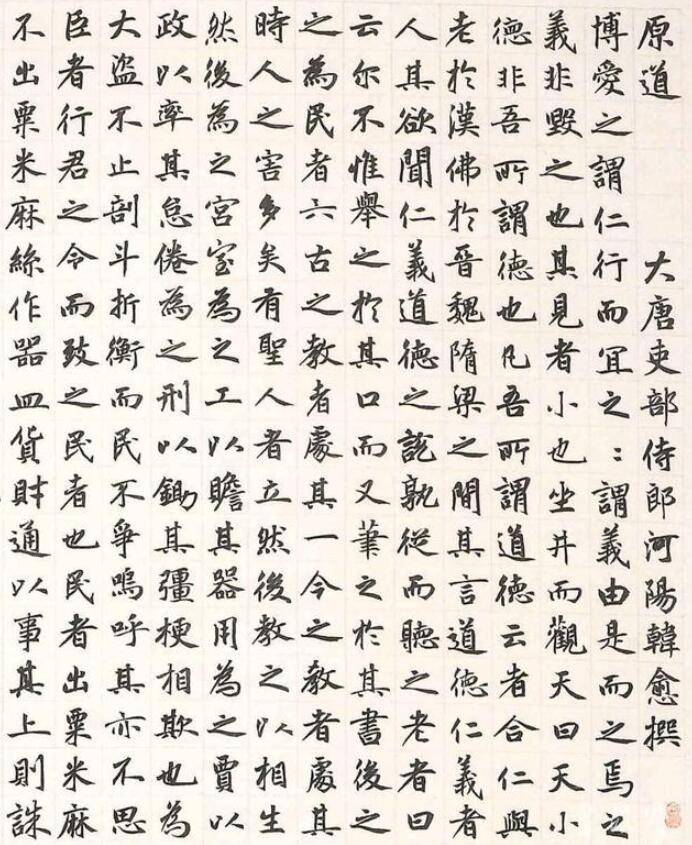 原道 大唐吏部侍郎河陽韓愈撰
博愛之謂仁行而宜之：謂義由是而之焉之
義非毀之也其見者小也坐井而觀天曰天小
德非吾所謂德也凡吾所謂道德云者合仁與
老於漢佛於晉魏隋梁之間其言道德仁義者
人其欲聞仁義道德之說孰從而聽之老者曰
云尔不惟舉之於其口而又筆之於其書後之
之為民者六古之教者處其一今之教者處其
時人之害多矣有聖人者立然後教之以相生
然後為之宮室為之工以贍其器用為之賈以
政以率其怠倦為之刑以鋤其彊梗相欺也為
大盜不止剖斗折衡而民不爭嗚呼其亦不思
臣者行君之令而致之民者也民者出粟米麻
不出粟米麻絲作器皿貨財通以事其上則誅